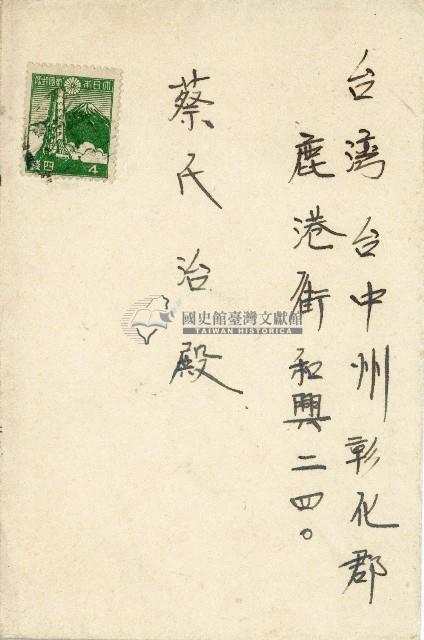 台湾台中州彰化郡
鹿港街和興二四。
蔡氏治殿
大日本帝國郵便
四
錢
4
國史館臺灣文獻館
TAIWAN HISTORICA